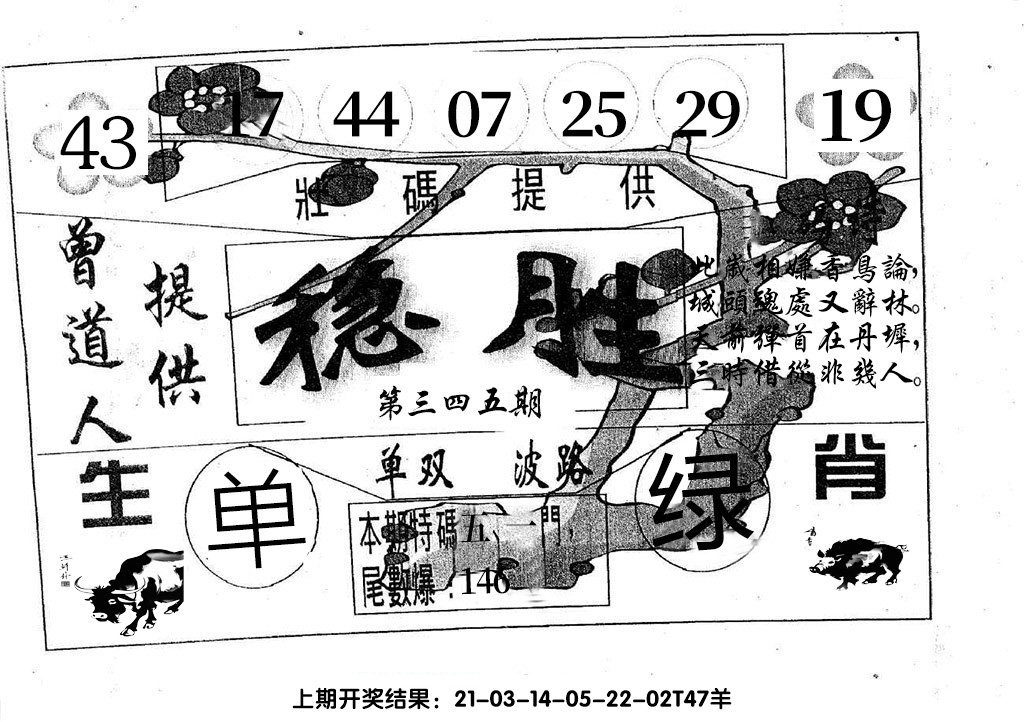 43 17 44 07 25 29 19
壯碼提供
曾道人
提供
稳胜
第三四五期
此歲相嫌香鳥論,
城頭魂處又辭林。
天箭彈首在丹墀,
三時借從非幾人。
单双 波路
生肖
单
绿
本期特碼五、一門,
尾數爆:146
上期开奖结果:21-03-14-05-22-02T47羊